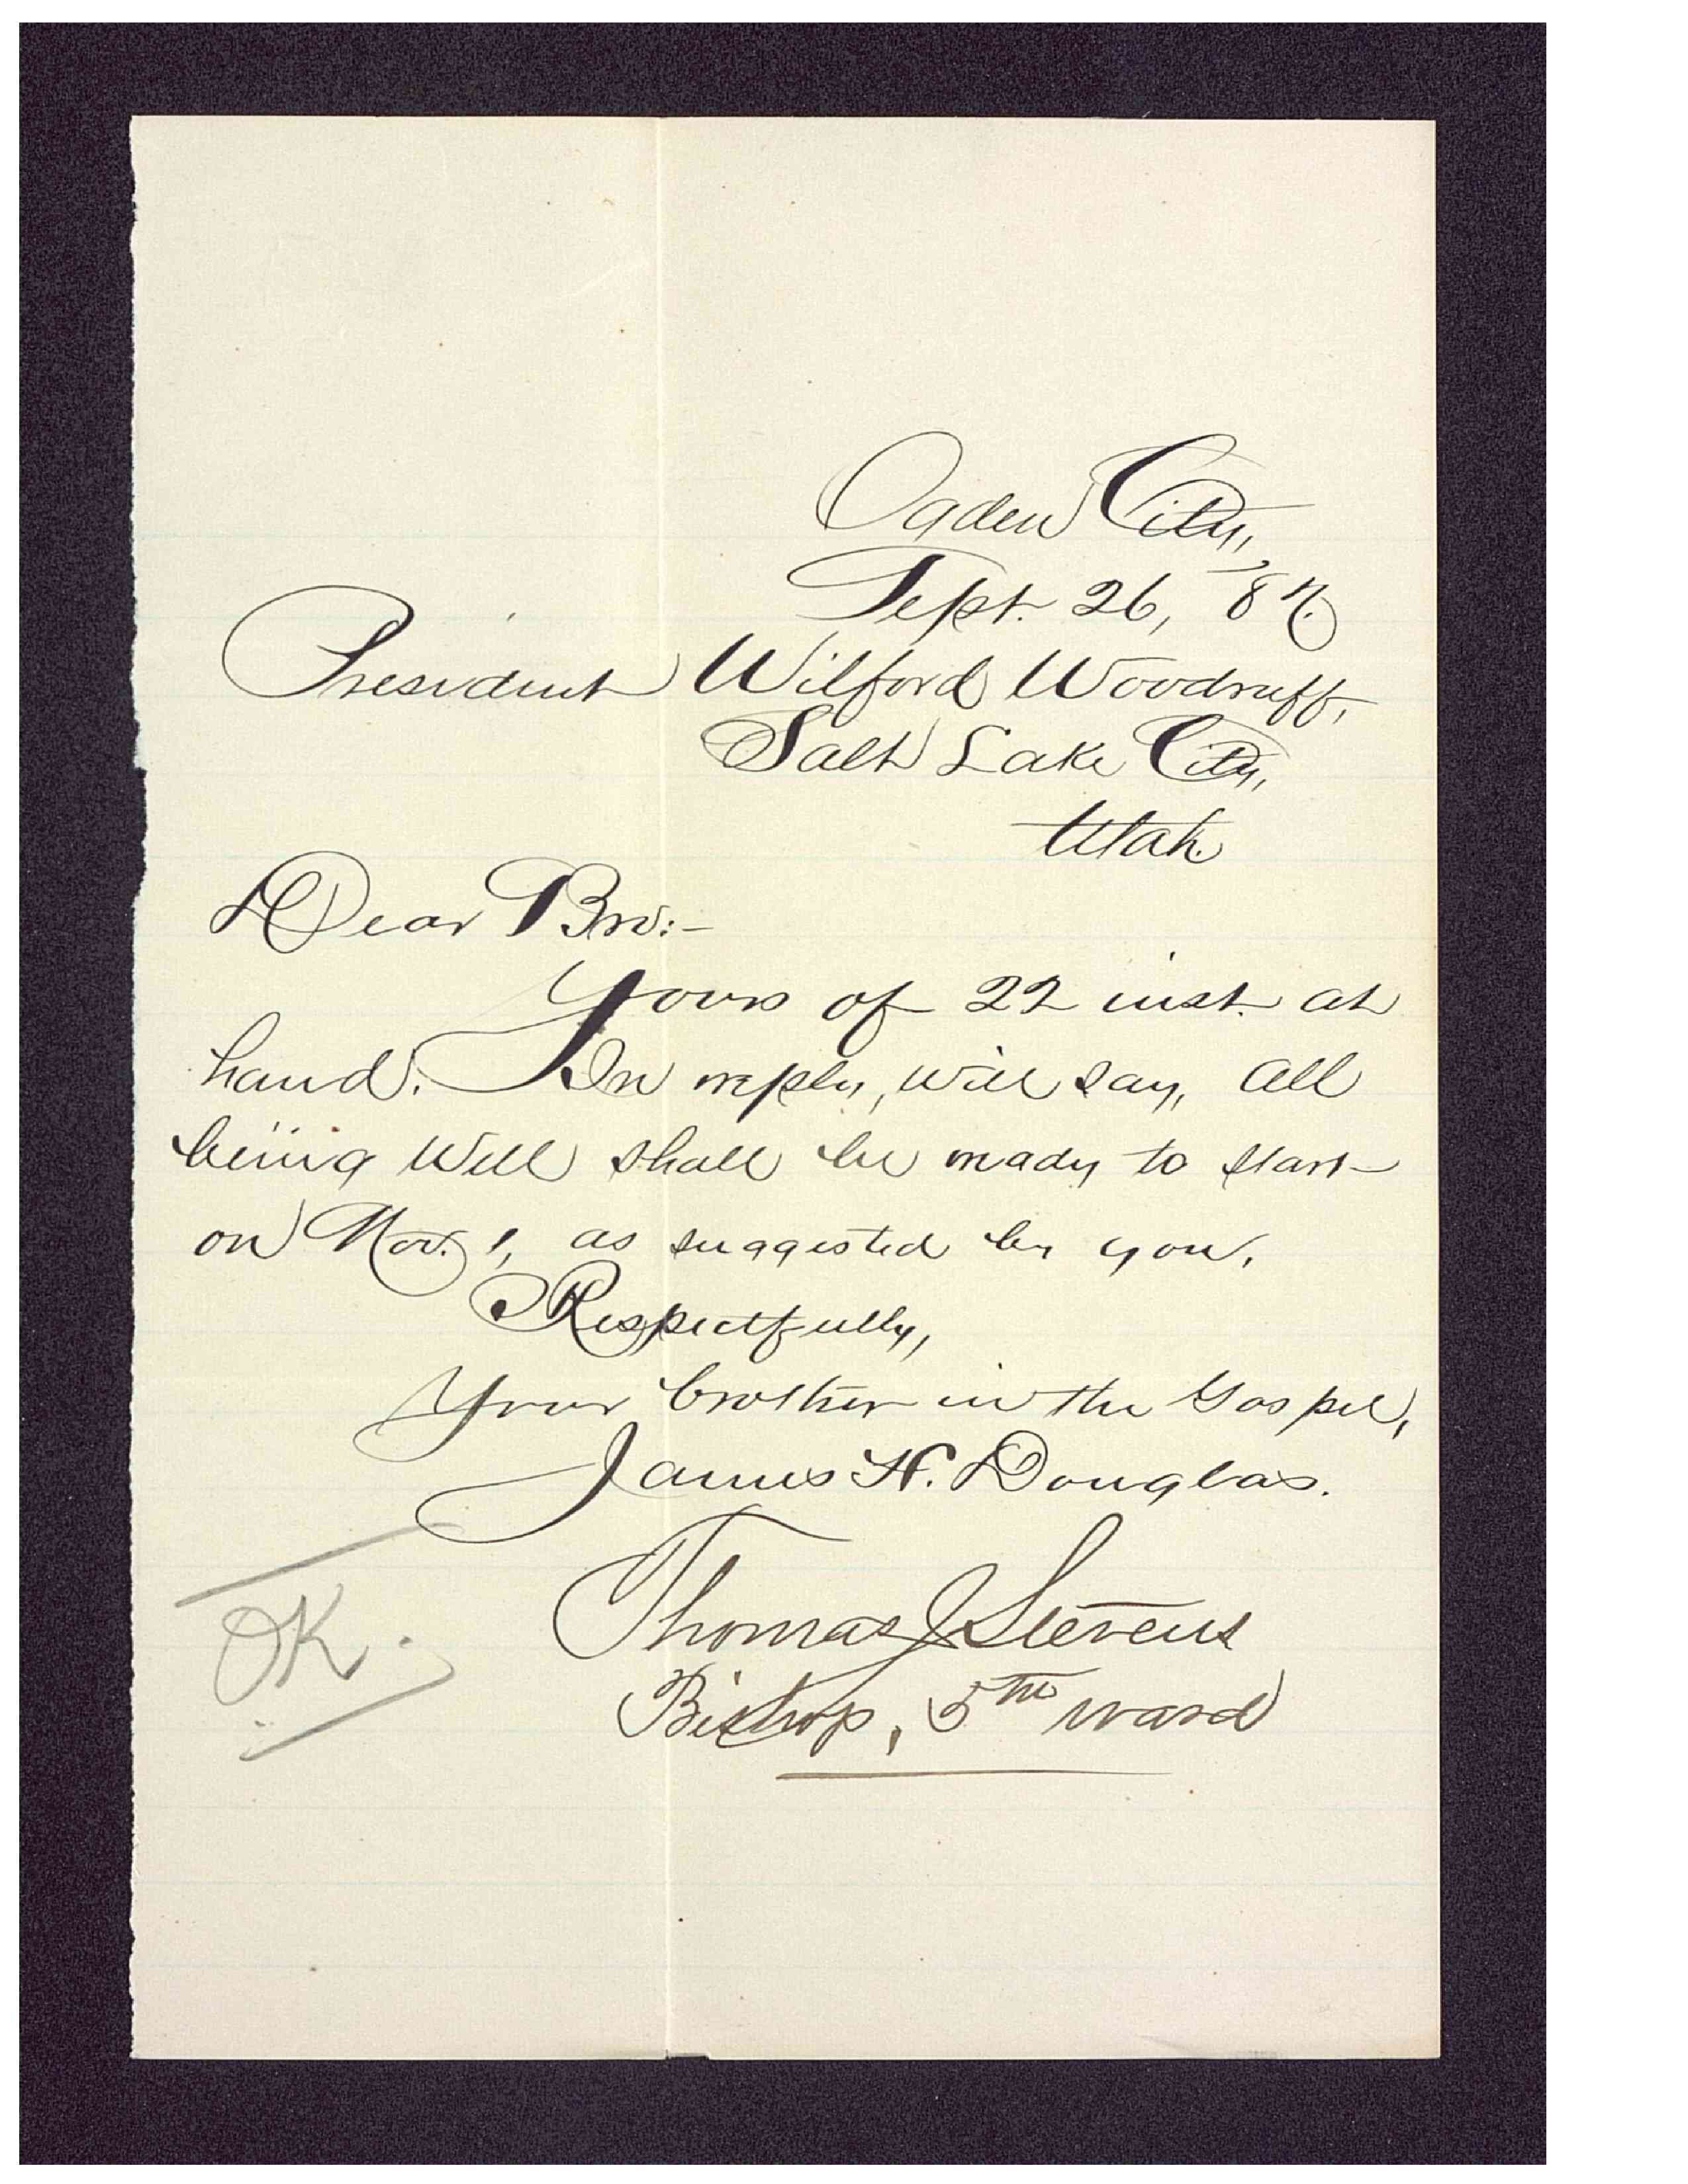 Ogden City,
Sept. 26, '87.
President Wilford Woodruff,
Salt Lake City,
Utah.
Dear Bro:-
Yours of 22 inst. at
hand. In reply, will say, all
being well shall be ready to start
on Nov. 1, as suggested by you.
Respectfully,
Your brother in the Gospel,
James H. Douglas.
Thomas J Stevens
Bishop, 5th ward
OK.